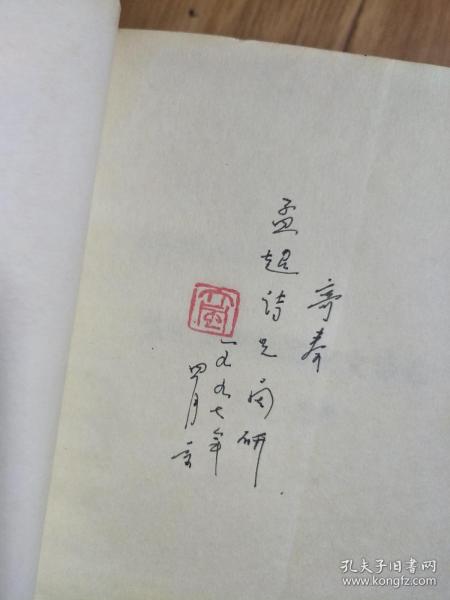 寄奉
孟超诗兄 研.
一九九七年
四月
孔夫子旧书网
www.kongfz.com